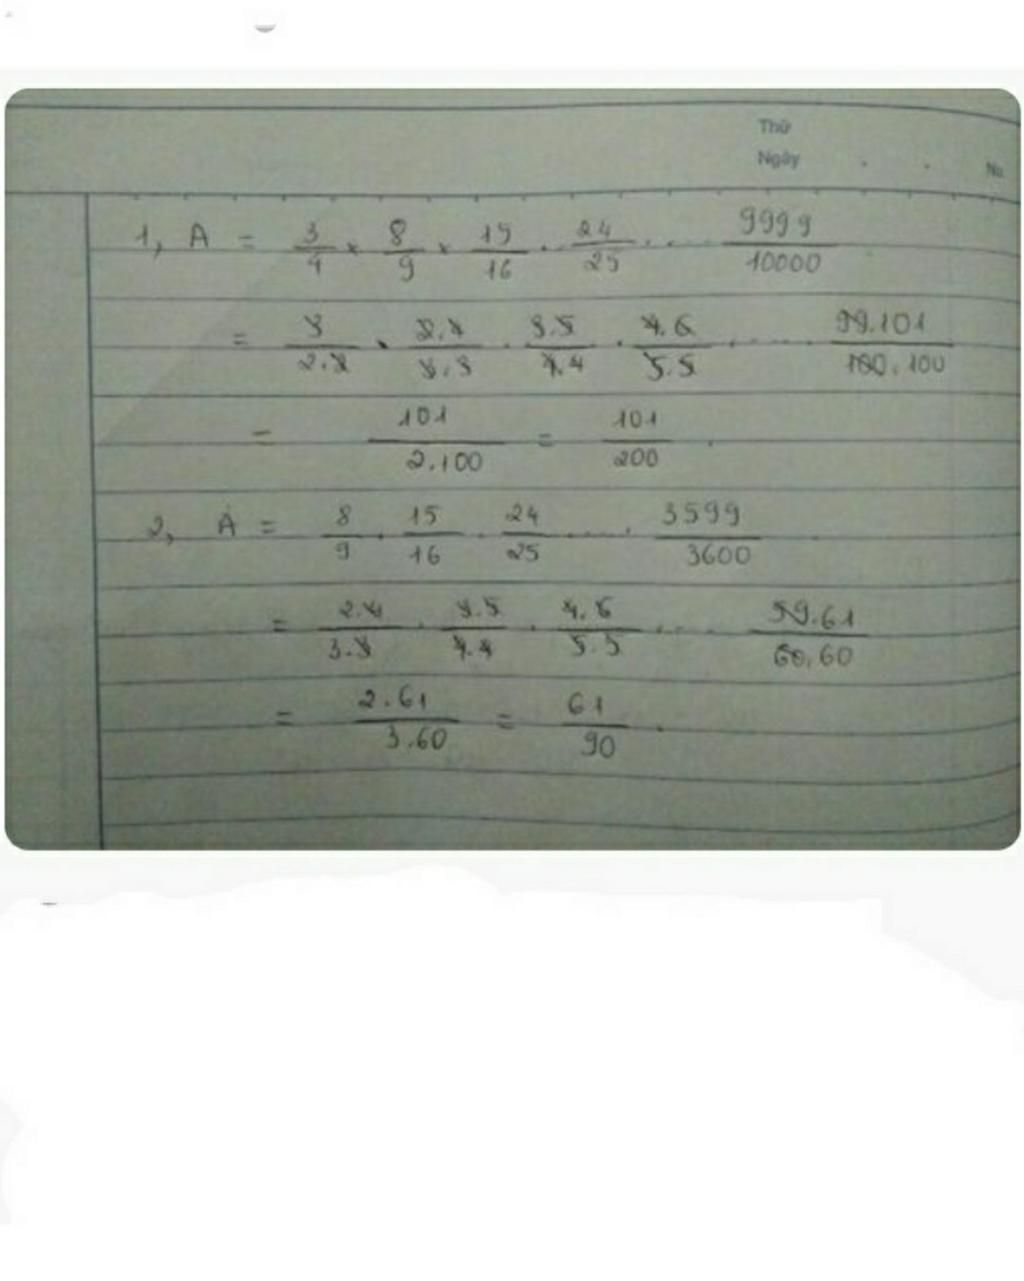 Thứ
Ngày . . No
1, A = 3/4 × 8/9 × 15/16 . 24/25 ..... 9999/10000
= 3/2.2 . 2.4/3.3 . 3.5/4.4 . 4.6/5.5 ...... 99.101/100.100
= 101/2.100 = 101/200 .
2, A = 8/9 . 15/16 . 24/25 ..... 3599/3600
= 2.4/3.3 . 3.5/4.4 . 4.6/5.5 .... 59.61/60.60
= 2.61/3.60 = 61/90 .